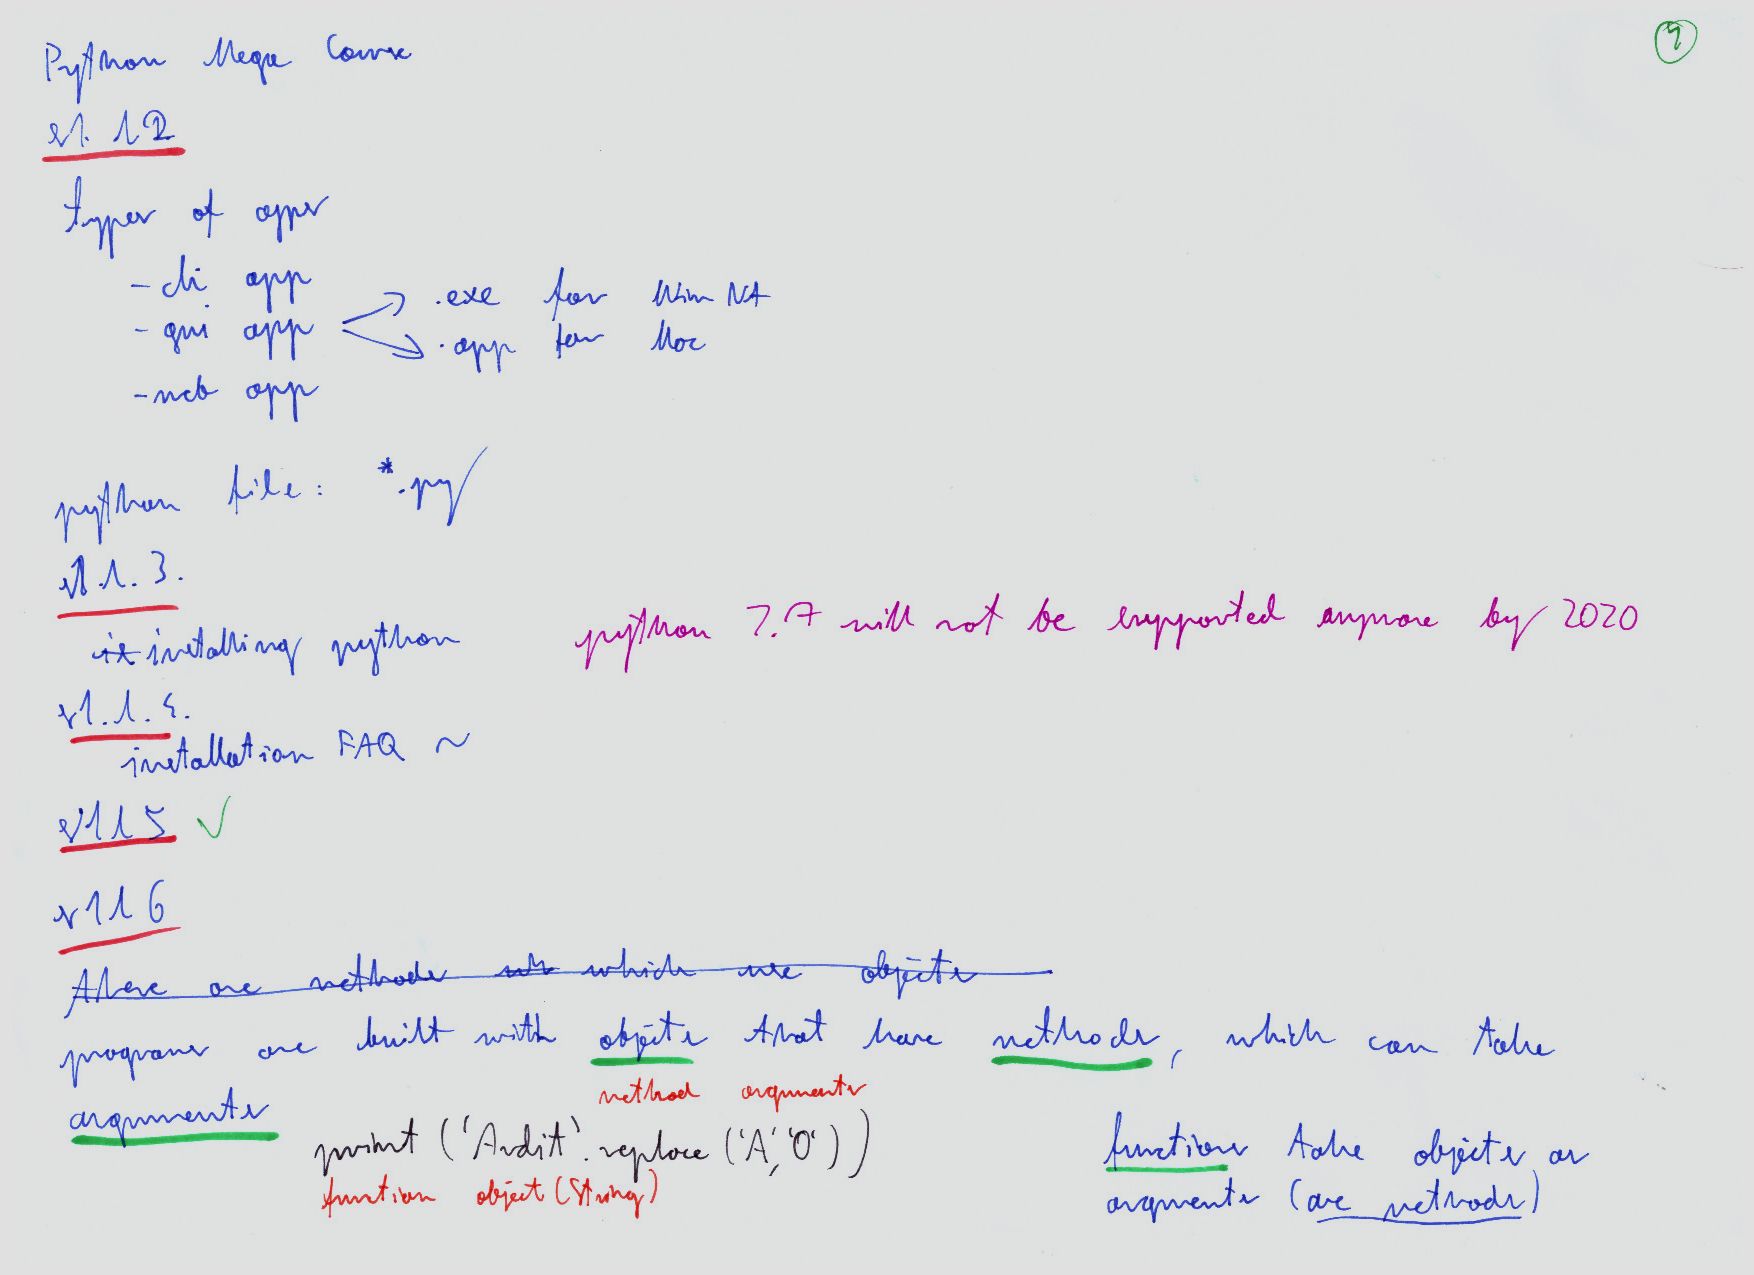 Python Mega Course
v1.12
types of apps
- cli app
- gui app
.exe for Win NA
.app for Mac
- web app
python file: *.py
v1.1.3.
installing python
python 2.7 will not be supported anymore by 2020
v1.1.4.
installation FAQ ~
v1 1 5 ✓
v1 1 6
There are methods which use objects
programs are built with objects that have methods, which can take
arguments
method arguments
print ('Ardit'.replace('A','O'))
function object (String)
functions take objects as
arguments (are methods)